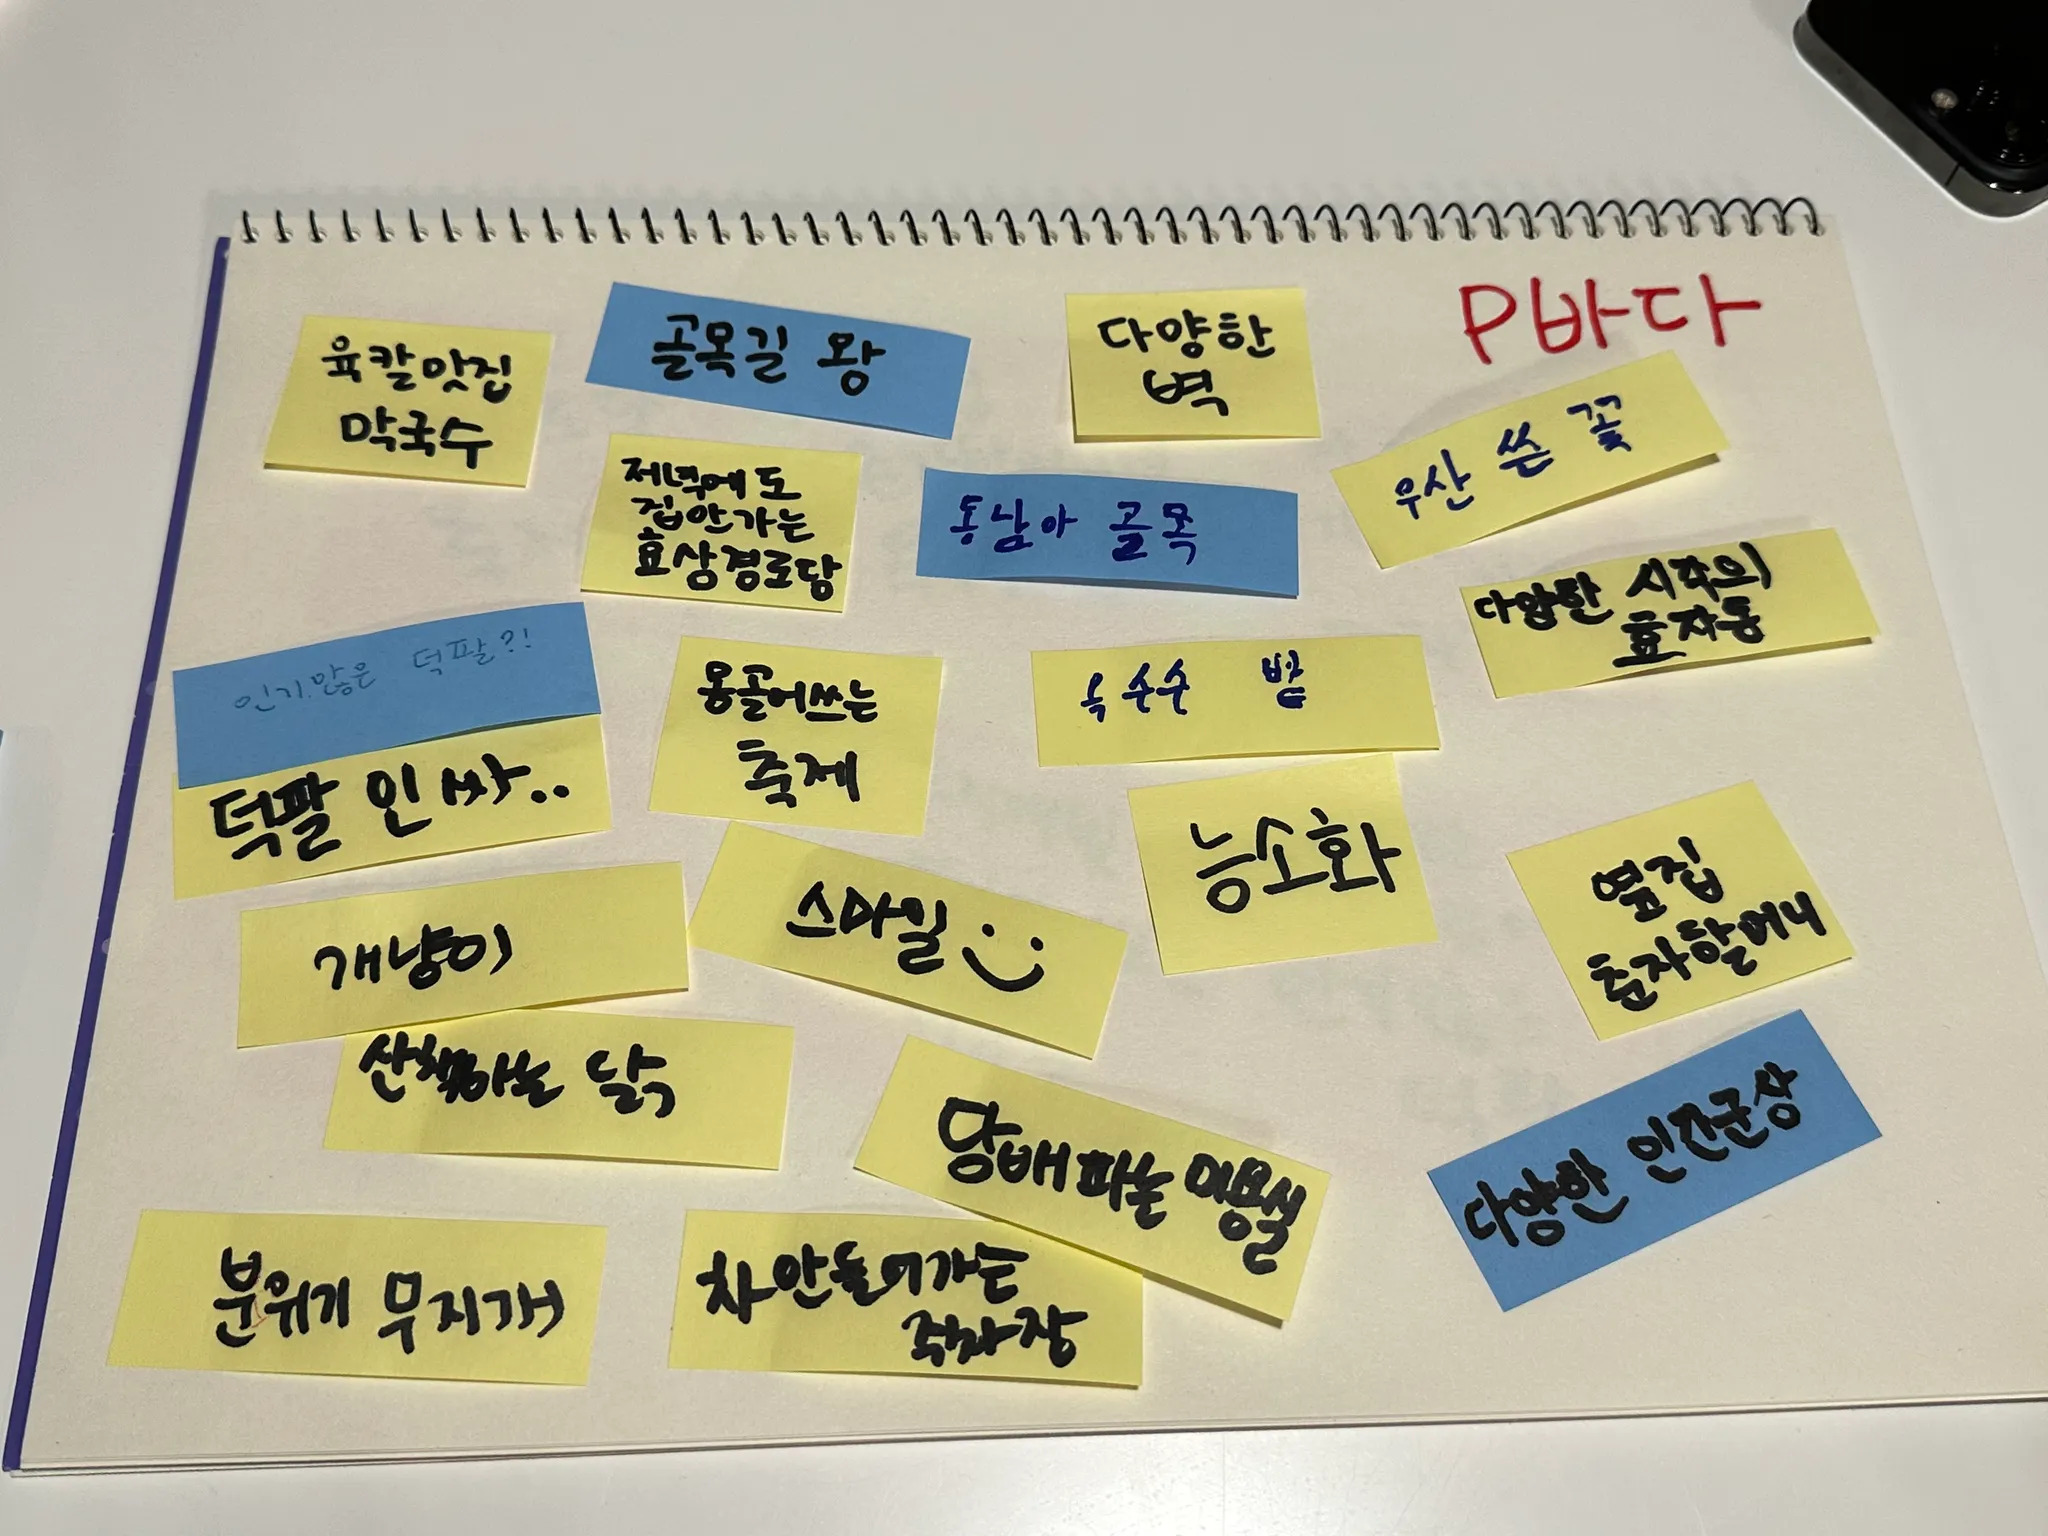 P바다
육칼맛집
막국수
골목길 왕
다양한
벽
우산 쓴 꽃
저녁에도
집안가는
효상경로당
동남아 골목
다양한 시각의
효자동
인기많은 덕팔?!
덕팔 인싸..
몽골어쓰는
축제
옥수수 밭
능소화
옆집
춘자할머니
개냥이
스마일
산책하는 닭
담배파는 미용실
다양한 인간군상
분위기 무지개
차안들어가는
주차장